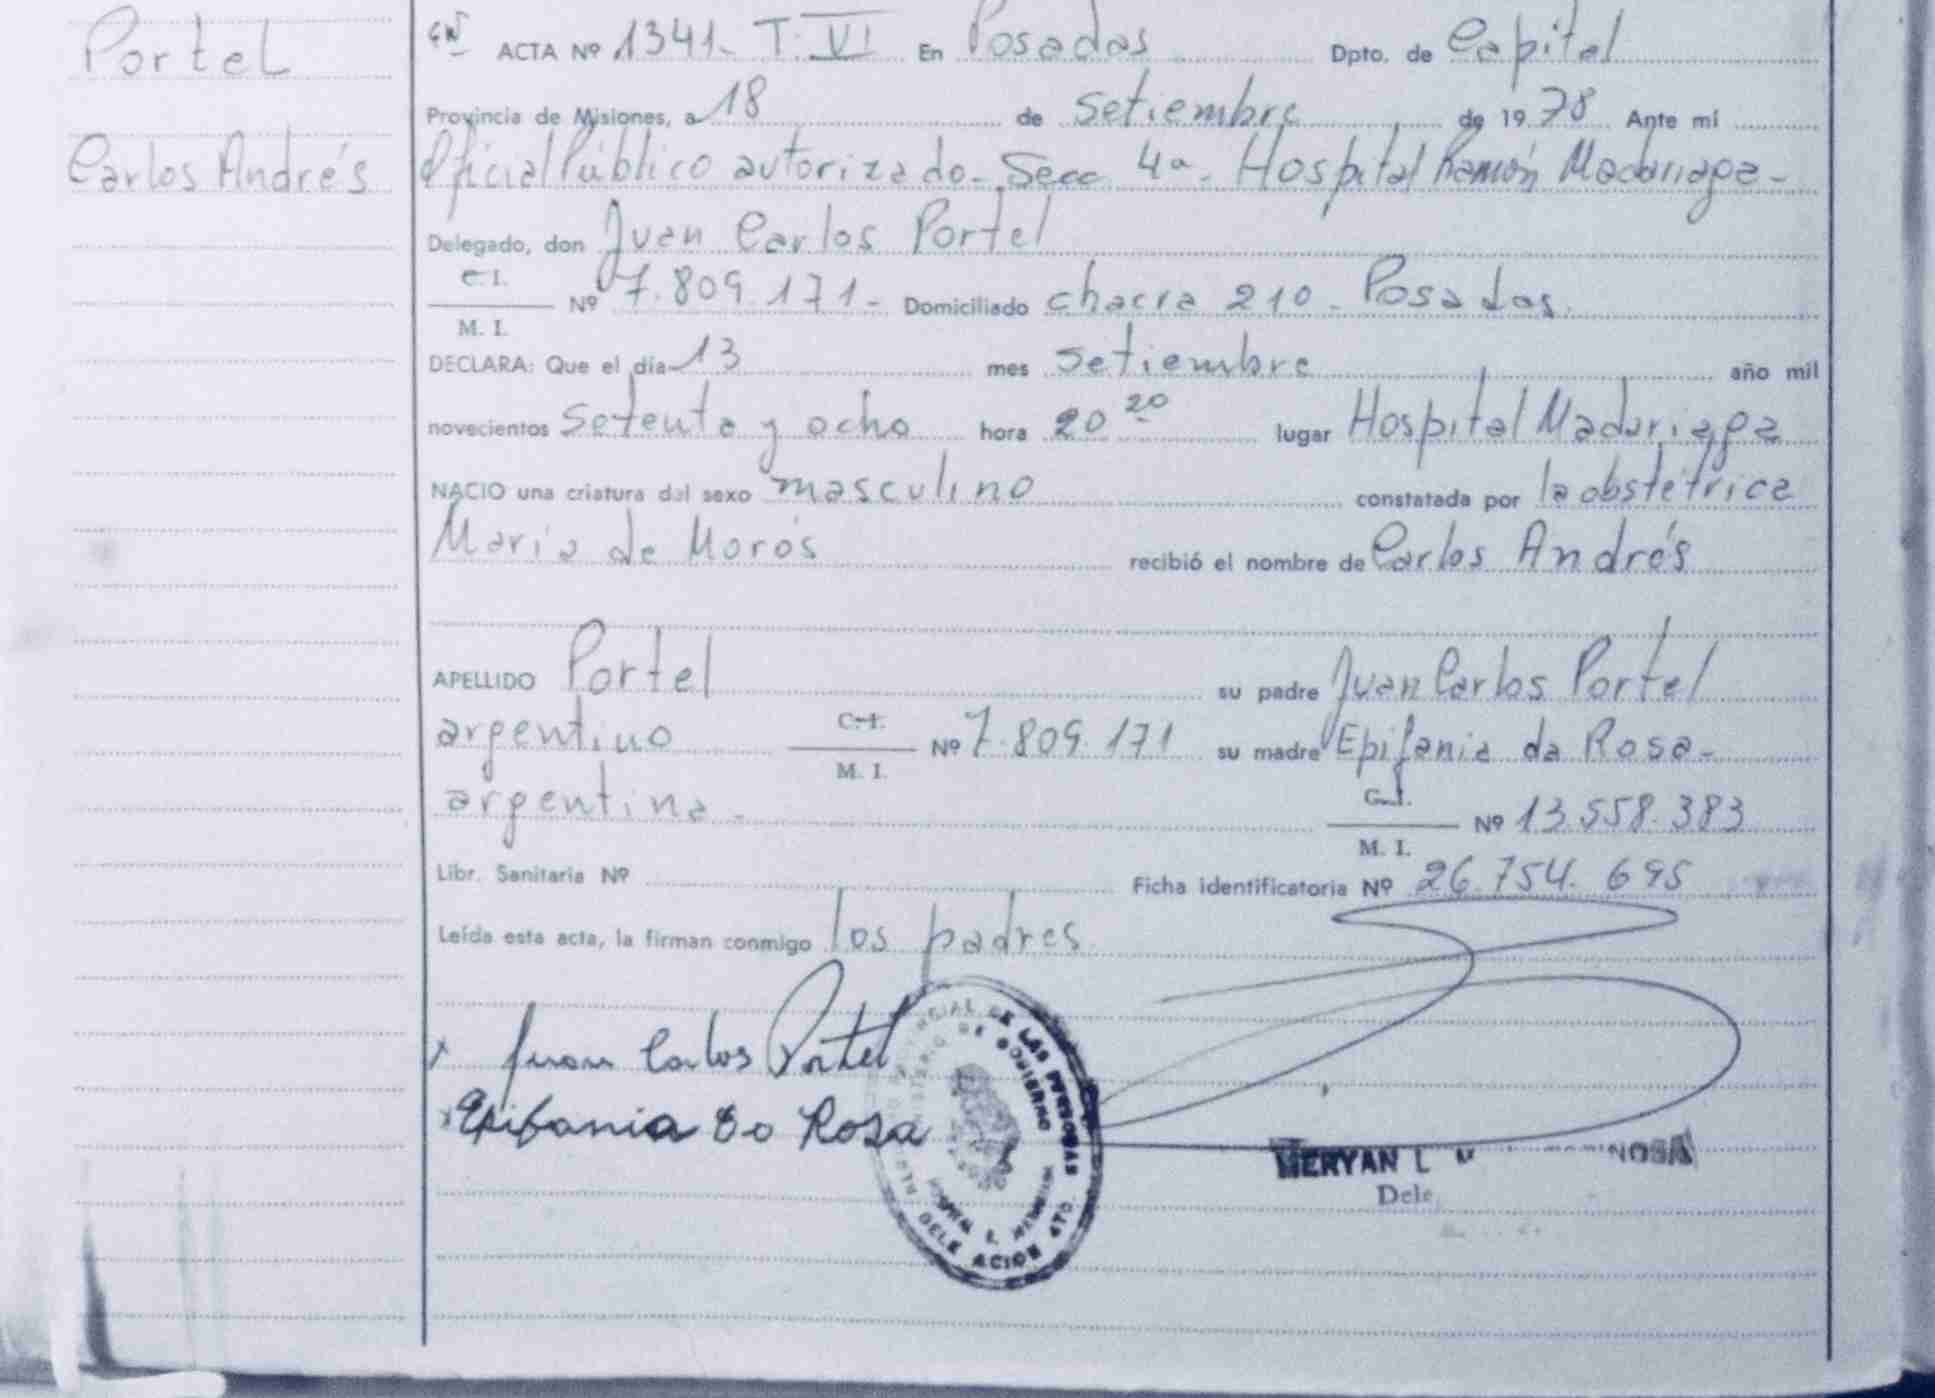 Portel
Carlos Andrés
ACTA Nº 1341- T. VI En Posadas Dpto. de Capital
Provincia de Misiones, a 18 de Setiembre de 1978 Ante mi
Oficial Público autorizado- Secc 4ª- Hospital Ramón Madariaga-
Delegado, don Juan Carlos Portel
C. I.
Nº 7.809.171- Domiciliado chacra 210- Posadas.
M. I.
DECLARA: Que el día 13 mes Setiembre año mil
novecientos setenta y ocho hora 20 20 lugar Hospital Madariaga
NACIO una criatura del sexo masculino constatada por la obstétrica
María de Morós recibió el nombre de Carlos Andrés
APELLIDO Portel su padre Juan Carlos Portel
argentino C. I. Nº 7.809.171 su madre Epifania da Rosa-
M. I.
argentina- C. I. Nº 13.558.383
M. I.
Libr. Sanitaria Nº Ficha identificatoria Nº 26.754.695
Leída esta acta, la firman conmigo los padres.
x Juan Carlos Portel
x Epifania Do Rosa
DE LAS PERSONAS
DE GOBIERNO
DELEGACION 4TO.
MERYAN L
Dele